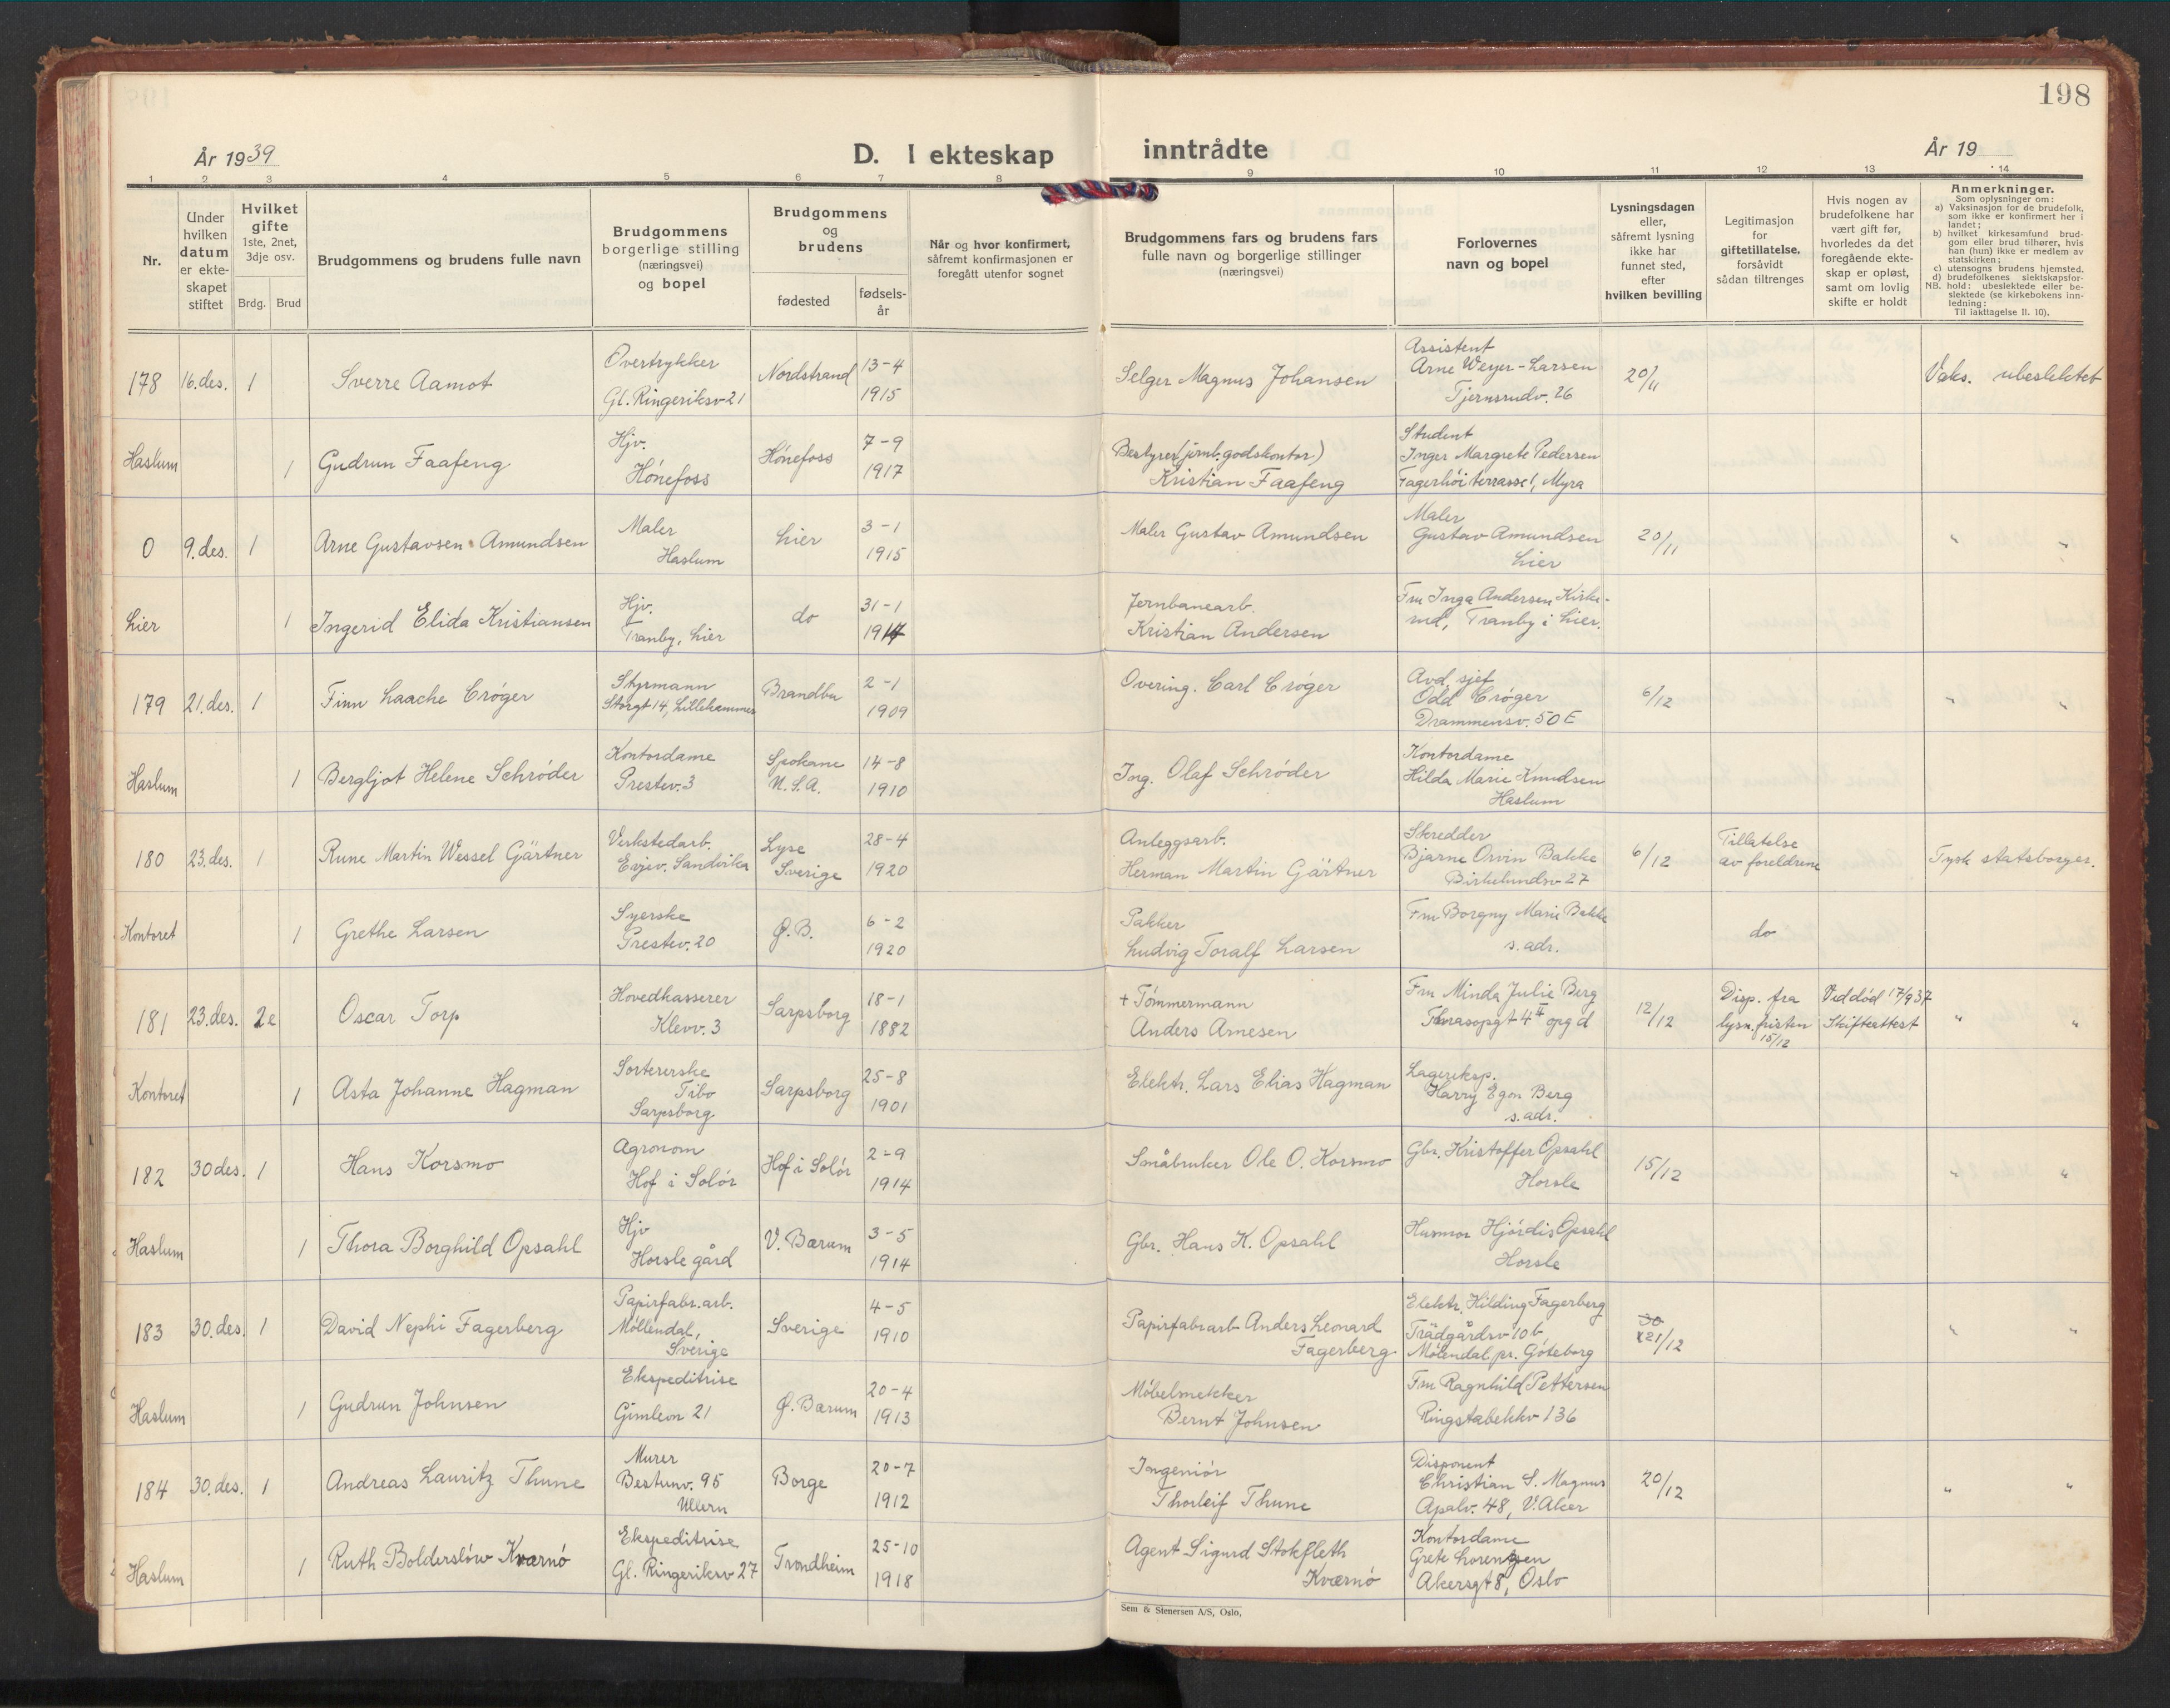 198
År 1939
D. I ekteskap inntrådte
År 19
1 2 3 4 5 6 7 8 9 10 11 12 13 14
Nr.
Under hvilken datum er ekteskapet stiftet
Hvilket gifte
1ste, 2net, 3dje osv.
Brdg. Brud
Brudgommens og brudens fulle navn
Brudgommens borgerlige stilling (næringsvei) og bopel
Brudgommens og brudens
fødested
fødsels-år
Når og hvor konfirmert,
såfremt konfirmasjonen er
foregått utenfor sognet
Brudgommens fars og brudens fars
fulle navn og borgerlige stillinger
(næringsvei)
Forlovernes
navn og bopel
Lysningsdagen
eller,
såfremt lysning
ikke har
funnet sted,
efter
hvilken bevilling
Legitimasjon
for
giftetillatelse,
forsåvidt
sådan tiltrenges
Hvis nogen av
brudefolkene har
vært gift før,
hvorledes da det
foregående ekte-
skap er opløst,
samt om lovlig
skifte er holdt
Anmerkninger.
Som oplysninger om:
a) Vaksinasjon for de brudefolk,
som ikke er konfirmert her i
landet;
b) hvilket kirkesamfund brud-
gom eller brud tilhører, hvis
han (hun) ikke er medlem av
statskirken;
c) utensogns brudens hjemsted.
d) brudefolkenes slektskapsfor-
NB. hold: ubeslektede eller be-
slektede (se kirkebokens inn-
ledning:
Til iakttagelse II. 10).
178 16.des. 1 Sverre Aamot
Overtrykker
Gl. Ringeriksv 21
Nordstrand 13-4
1915
Selger Magnus Johansen
Assistent
Arne Weyer-Larsen
Tjernsrudv. 26
20/11
Vaks. ubeslektet
Haslum 1 Gudrun Faafeng
Hjv.
Hønefoss
Hønefoss 7-9
1917
Bestyrer (jernb. godskontor)
Kristian Faafeng
Student
Inger Margrete Pedersen
Fagerhøi terrasse 1, Myra
0 9.des. 1 Arne Gustavsen Amundsen
Maler
Haslum
Lier 3-1
1915
Maler Gustav Amundsen
Maler
Gustav Amundsen
Lier
20/11
" "
Lier 1 Ingerid Elida Kristiansen
Hjv.
Tranby, Lier
do 31-1
1917
Jernbanearb.
Kristian Andersen
Fru Inga Andersen Kirke-
rud, Tranby i Lier.
179 21.des. 1 Finn Laache Crøger
Styrmann
Storgt 14, Lillehammer
Brandbu 2-1
1909
Overing. Carl Crøger
Avd. sjef
Odd Crøger
Drammensv. 50 E
6/12
" "
Haslum 1 Bergljot Helene Schrøder
Kontordame
Prestev. 3
Spokane
U.S.A.
14-8
1910
Ing. Olaf Schrøder
Kontordame
Hilda Marie Knudsen
Haslum
180 23.des. 1 Rune Martin Wessel Gärtner
Verkstedarb.
Evjev. Sandvika
Lyse
Sverige
28-4
1920
Anleggsarb.
Herman Martin Gärtner
Skredder
Bjarne Orvin Bakke
Birkelundsv 27
6/12
Tillatelse
av foreldrene
Tysk statsborger.
Kontoret 1 Grethe Larsen
Syerske
Prestev. 20
Ø.B. 6-2
1920
Pakker
Ludvig Toralf Larsen
Fru Borgny Marie Bakke
s. adr.
do
181 23.des. 2e Oscar Torp
Hovedkasserer
Klevv. 3
Sarpsborg 18-1
1882
+ Tømmermann
Anders Arnesen
Fru Minda Julie Berg
Thrasopgt 4 II opg d
12/12
Disp. fra
lysn. fristen
15/12
Ved død 17/9 37
Skifteattest
" "
Kontoret 1 Asta Johanne Hagman
Sortererske
Tibo
Sarpsborg
Sarpsborg 25-8
1901
Elektr. Lars Elias Hagman
Lagereksp.
Harry Egon Berg
s. adr.
182 30 des. 1 Hans Korsmo
Agronom
Hof i Solør
Hof i Solør 2-9
1914
Småbruker Ole O. Korsmo
Gbr. Kristoffer Opsahl
Horsle
15/12
" "
Haslum 1 Thora Borghild Opsahl
Hjv
Horsle gård
V. Bærum 3-5
1914
Gbr. Hans K. Opsahl
Husmor Hjørdis Opsahl
Horsle
183 30.des. 1 David Nephi Fagerberg
Papirfabr.arb.
Möllendal,
Sverige
Sverige 4-5
1910
Papirfabrarb Anders Leonard
Fagerberg
Elektr. Hilding Fagerberg
Trädgårdsv 10b
Mölendal pr. Göteborg
21/12
" "
Haslum 1 Gudrun Johnsen
Ekspeditrise
Gimlevn 21
Ø. Bærum 20-4
1913
Møbelsnekker
Bernt Johnsen
Fru Ragnhild Pettersen
Ringstabekkv 136
184 30.des. 1 Andreas Lauritz Thune
Murer
Bestunv. 95
Ullern
Borge 20-7
1912
Ingeniør
Thorleif Thune
Disponent
Christian S. Magnus
Apalv. 48, V. Aker
20/12
" "
Haslum 1 Ruth Bolderslöw Kvarnø
Ekspeditrise
Gl. Ringeriksv 27
Trondheim 25-10
1918
Agent Sigurd Stokfleth
Kværnø
Kontordame
Grete Lorenzen
Akersgt 8, Oslo
Sem & Stenersen A/S, Oslo.